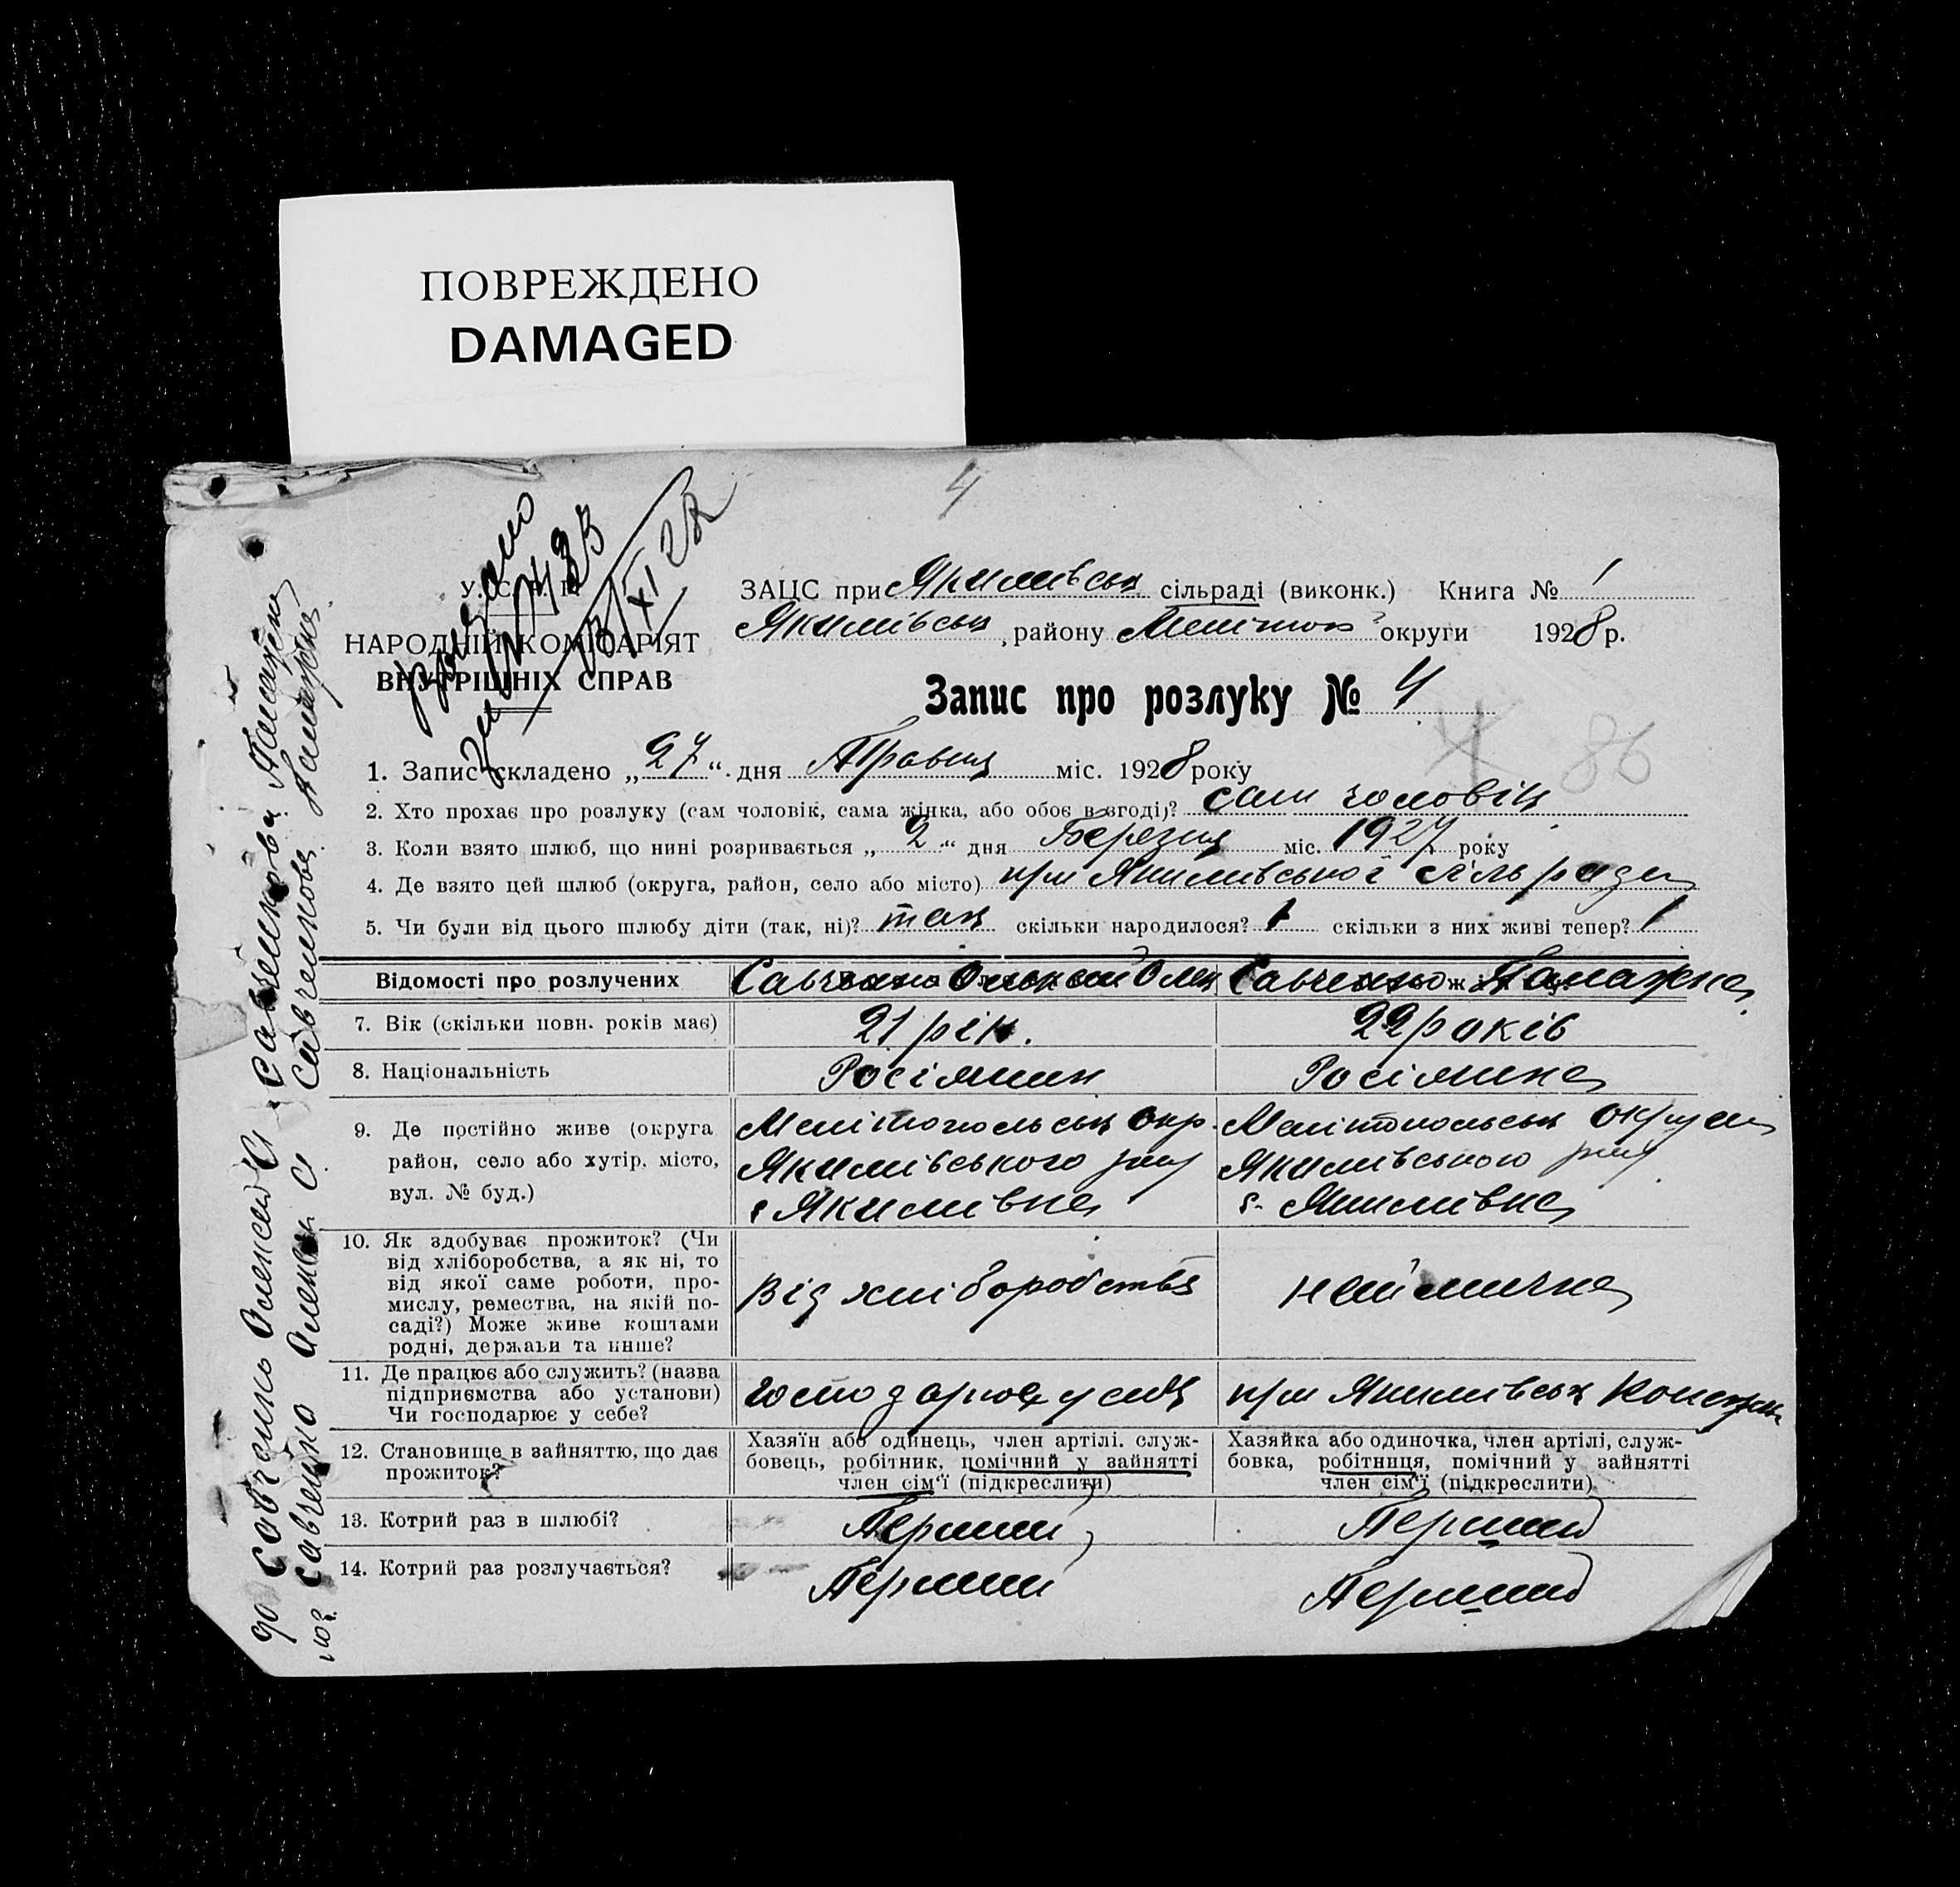 ПОВРЕЖДЕНО
DAMAGED
4
У. С. Р. Р.
НАРОДНІЙ КОМІСАРІЯТ
ВНУТРІШНІХ СПРАВ
ЗАЦС при Якимівськ сільраді (виконк.) Книга № 1
Якимівськ, району Меліток округи 1928 р.
Запис про розлуку № 4
4 86
1. Запис складено „27“ дня Травня міс. 1928 року
2. Хто прохає про розлуку (сам чоловік, сама жінка, або обоє в згоді)? сам чоловік
3. Коли взято шлюб, що нині розривається „2“ дня Березня міс. 1927 року
4. Де взято цей шлюб (округа, район, село або місто) при Якимівської сільради
5. Чи були від цього шлюбу діти (так, ні)? так скільки народилося? 1 скільки з них живі тепер? 1
Відомості про розлучених Савченко Савченко Палажка
7. Вік (скільки повн. років має) 21 рік. 22 років
8. Національність Росіянин Росіянка
9. Де постійно живе (округа район, село або хутір, місто, вул. № буд.)
Мелітопольськ окр. Якимівського рай с Якимівка
Мелітопольськ округи Якимівського рай с. Якимівка
10. Як здобуває прожиток? (Чи від хліборобства, а як ні, то від якої саме роботи, промислу, ремества, на якій посаді?) Може живе коштами родні, держави та инше?
Від хліборобства наймичка
11. Де працює або служить? (назва підприємства або установи) Чи господарює у себе?
господарює у себе при Якимівськ
12. Становище в зайняттю, що дає прожиток?
Хазяїн або одинець, член артілі, службовець, робітник, помічний у зайнятті член сім'ї (підкреслити)
Хазяйка або одиночка, член артілі, службовка, робітниця, помічний у зайнятті член сім'ї (підкреслити)
13. Котрий раз в шлюбі? Перший Перший
14. Котрий раз розлучається? Перший Перший
до Савченко Олексей
Савченко
Савченкова